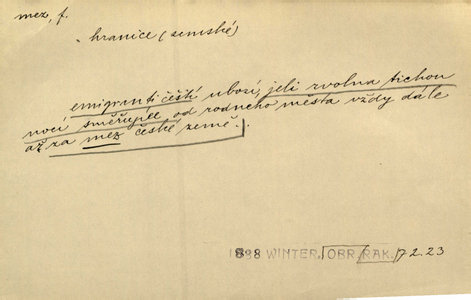 mez, f.
hranice (zemské)
emigranti čeští ubozí, jeli zvolna tichou
nocí směřujíce od rodného města vždy dále
až za mez české země.
1888 WINTER, OBR. RAK. 72.23